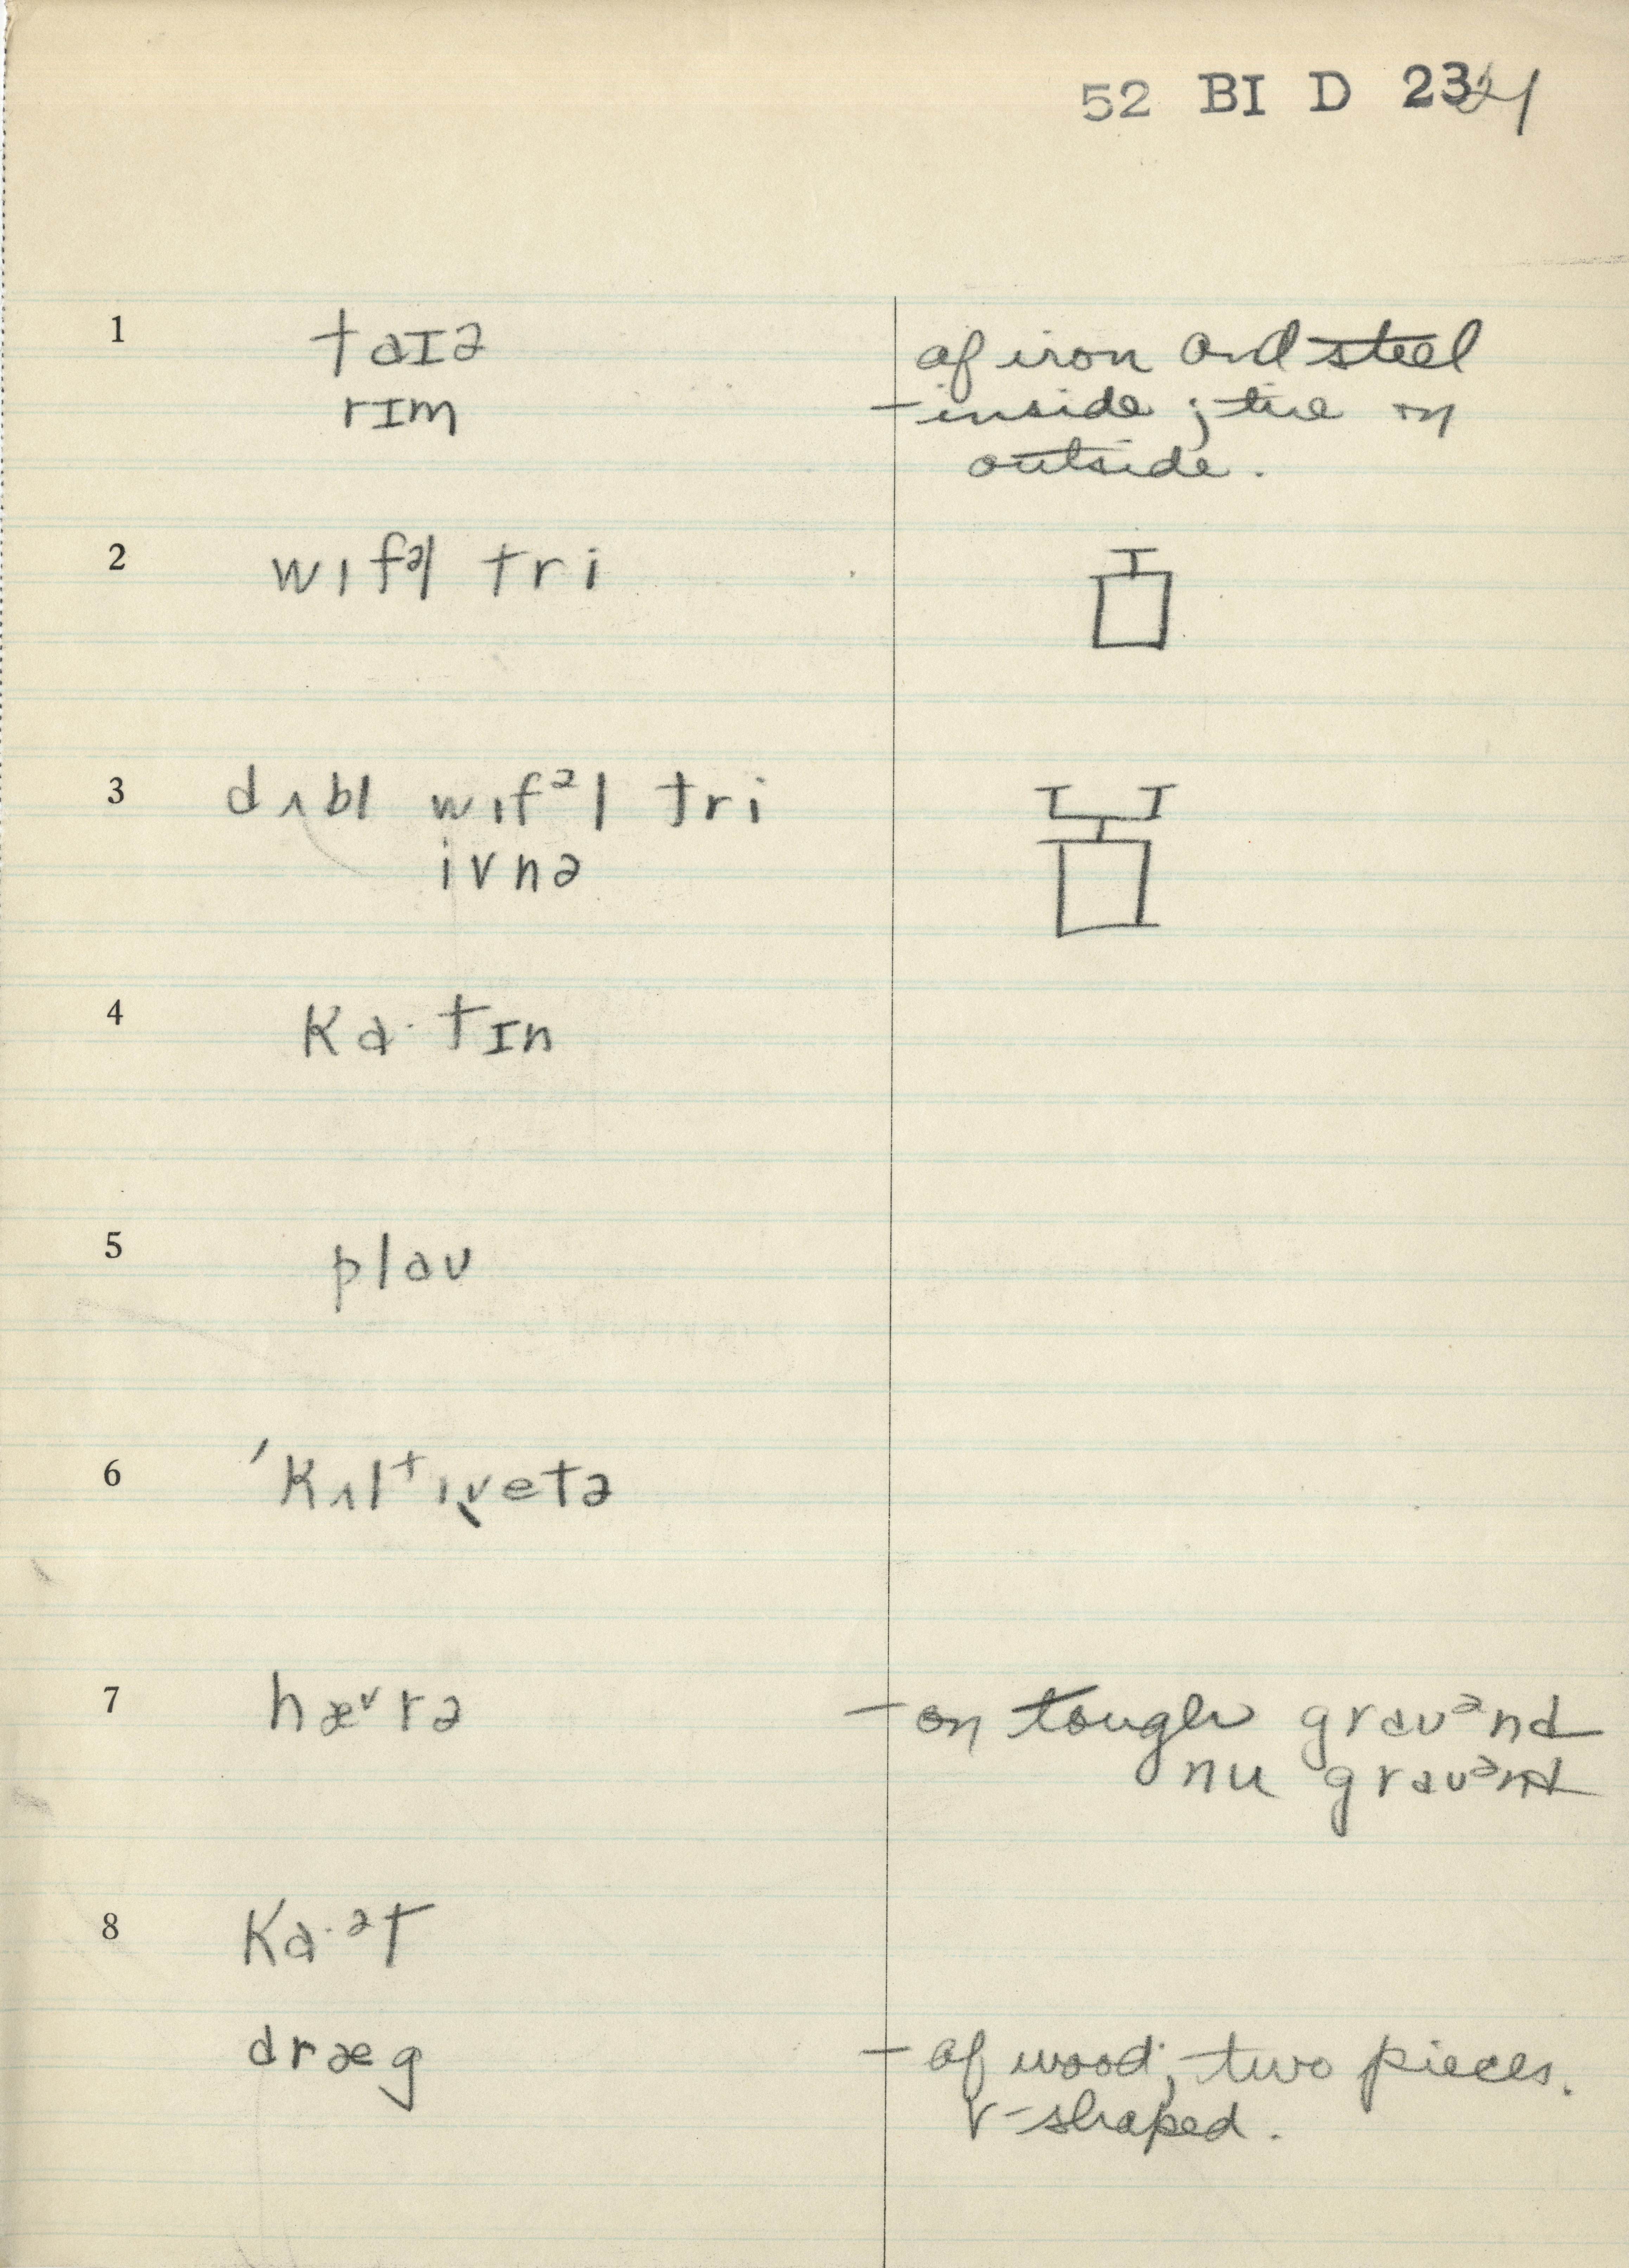 52 BI D 23 24
1 taɪə of iron and steel
rɪm – inside; tire on
outside.
2 wɪfəl tri
3 dʌbl wɪfᵊl tri
ivnə
4 ka·tɪn
5 plaʊ
6 'kʌltɪˌvetə
7 hæᵛrə – on tough graʊᵊnd
nu graʊᵊnd
8 ka·ᵊt
dræg – of wood; two pieces.
V-shaped.